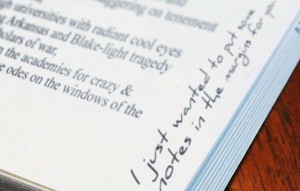 ggering on tenement
gh universities with radiant cool eyes
g Arkansas and Blake-light tragedy
holars of war.
the academies for crazy &
g odes on the windows of the
I just wanted to put some
notes in the margins for you